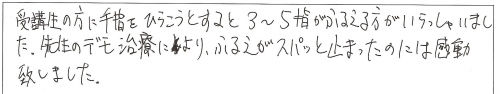 受講生の方に手指をひらこうとすると3～5指がふるえる方がいらっしゃいまし
た。先生のデモ治療により、ふるえがスパッと止まったのには感動
致しました。